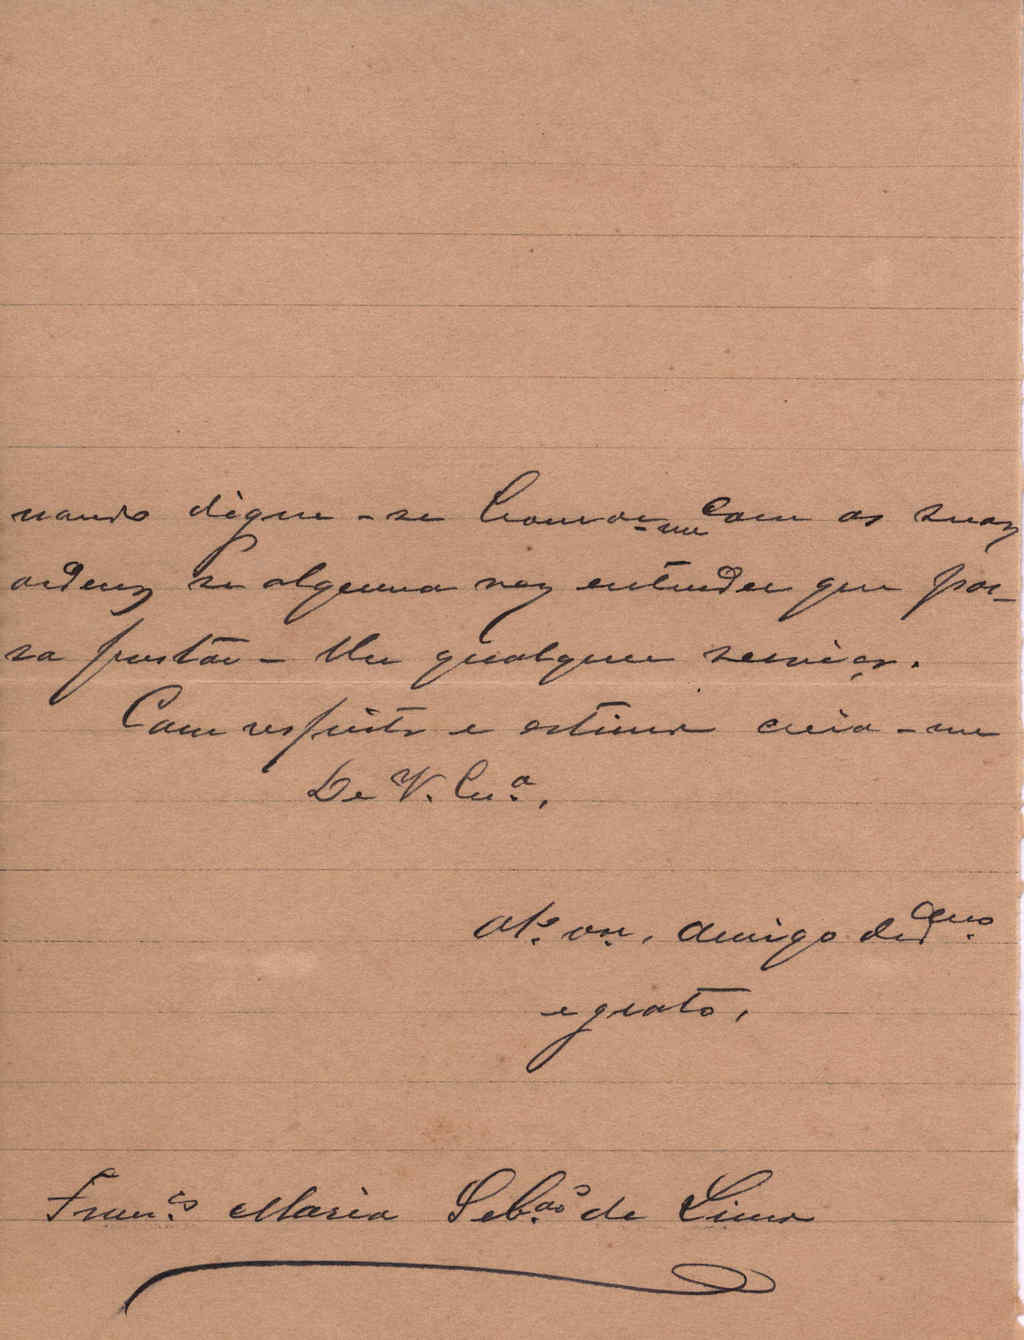 nando digne-se honrar-me com as suas
ordens se alguma vez entender que pos-
sa prestar-lhe qualquer serviço.
Com respeito e estima creia-me
De V. Exª.
Atº. vnr. amigo dedmo.
e grato,
Francº. Maria Sebão. de Lima